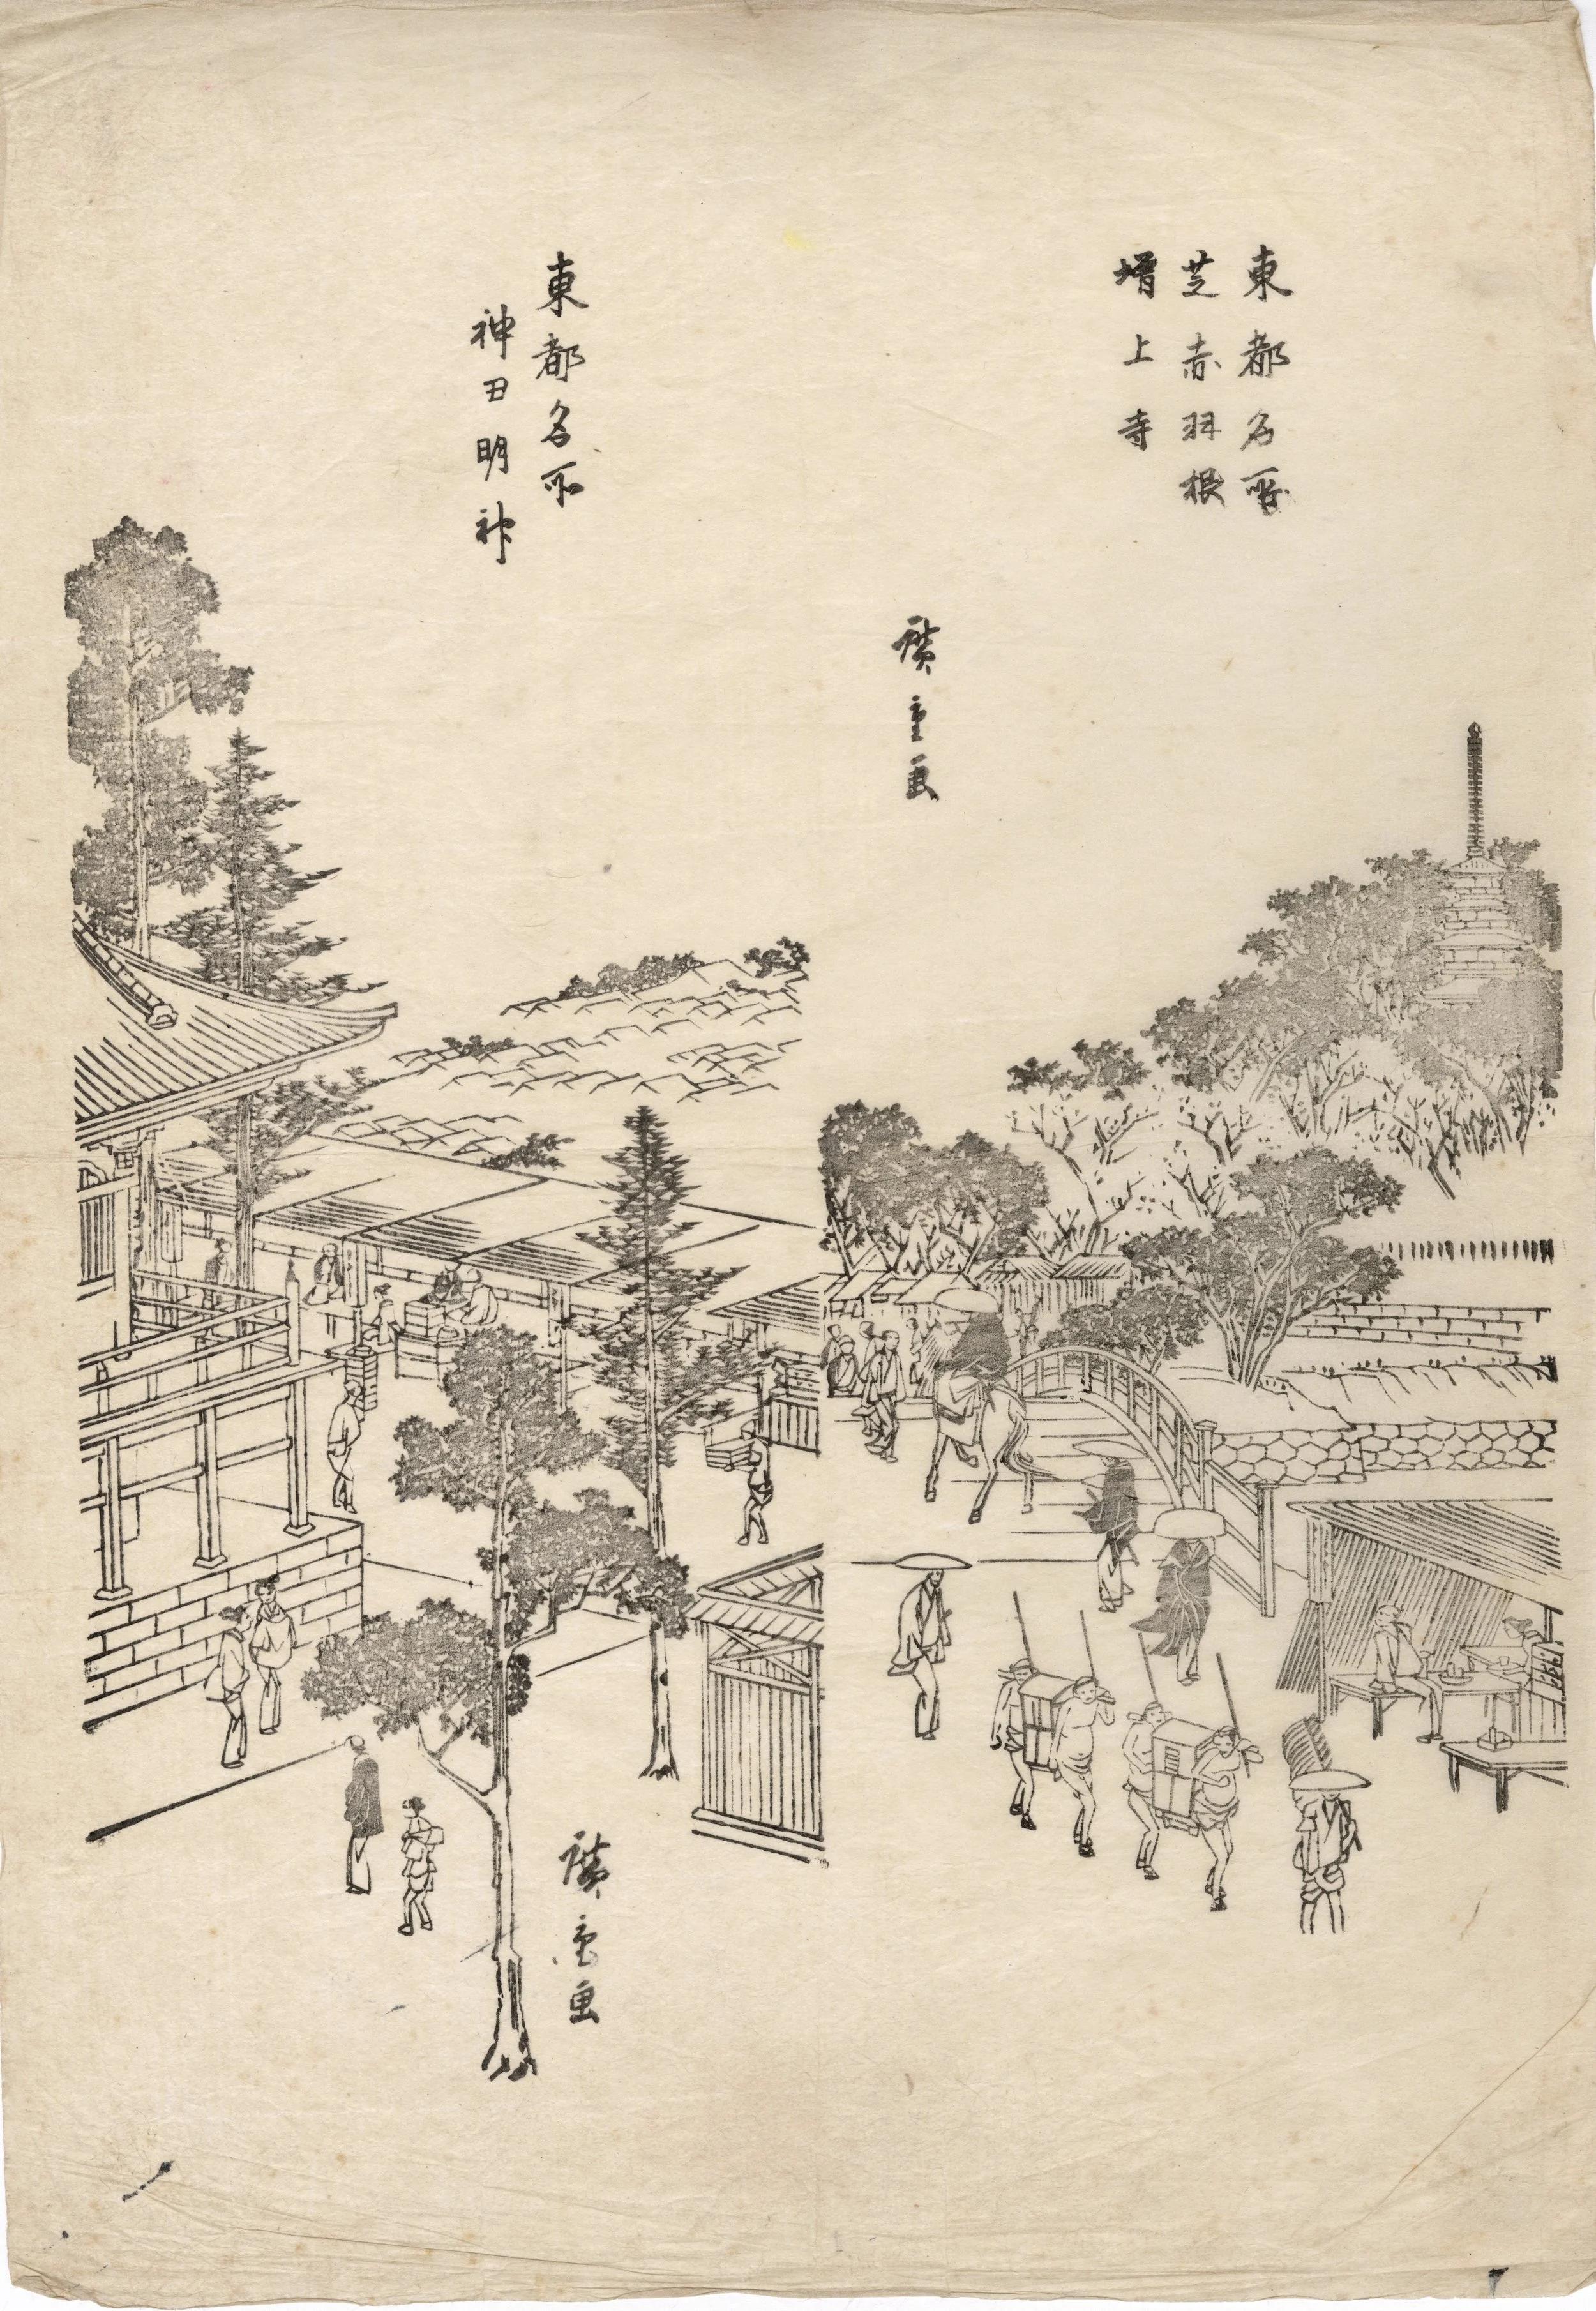 東都名所
芝赤羽根
増上寺
廣重画
東都名所
神田明神
廣重画